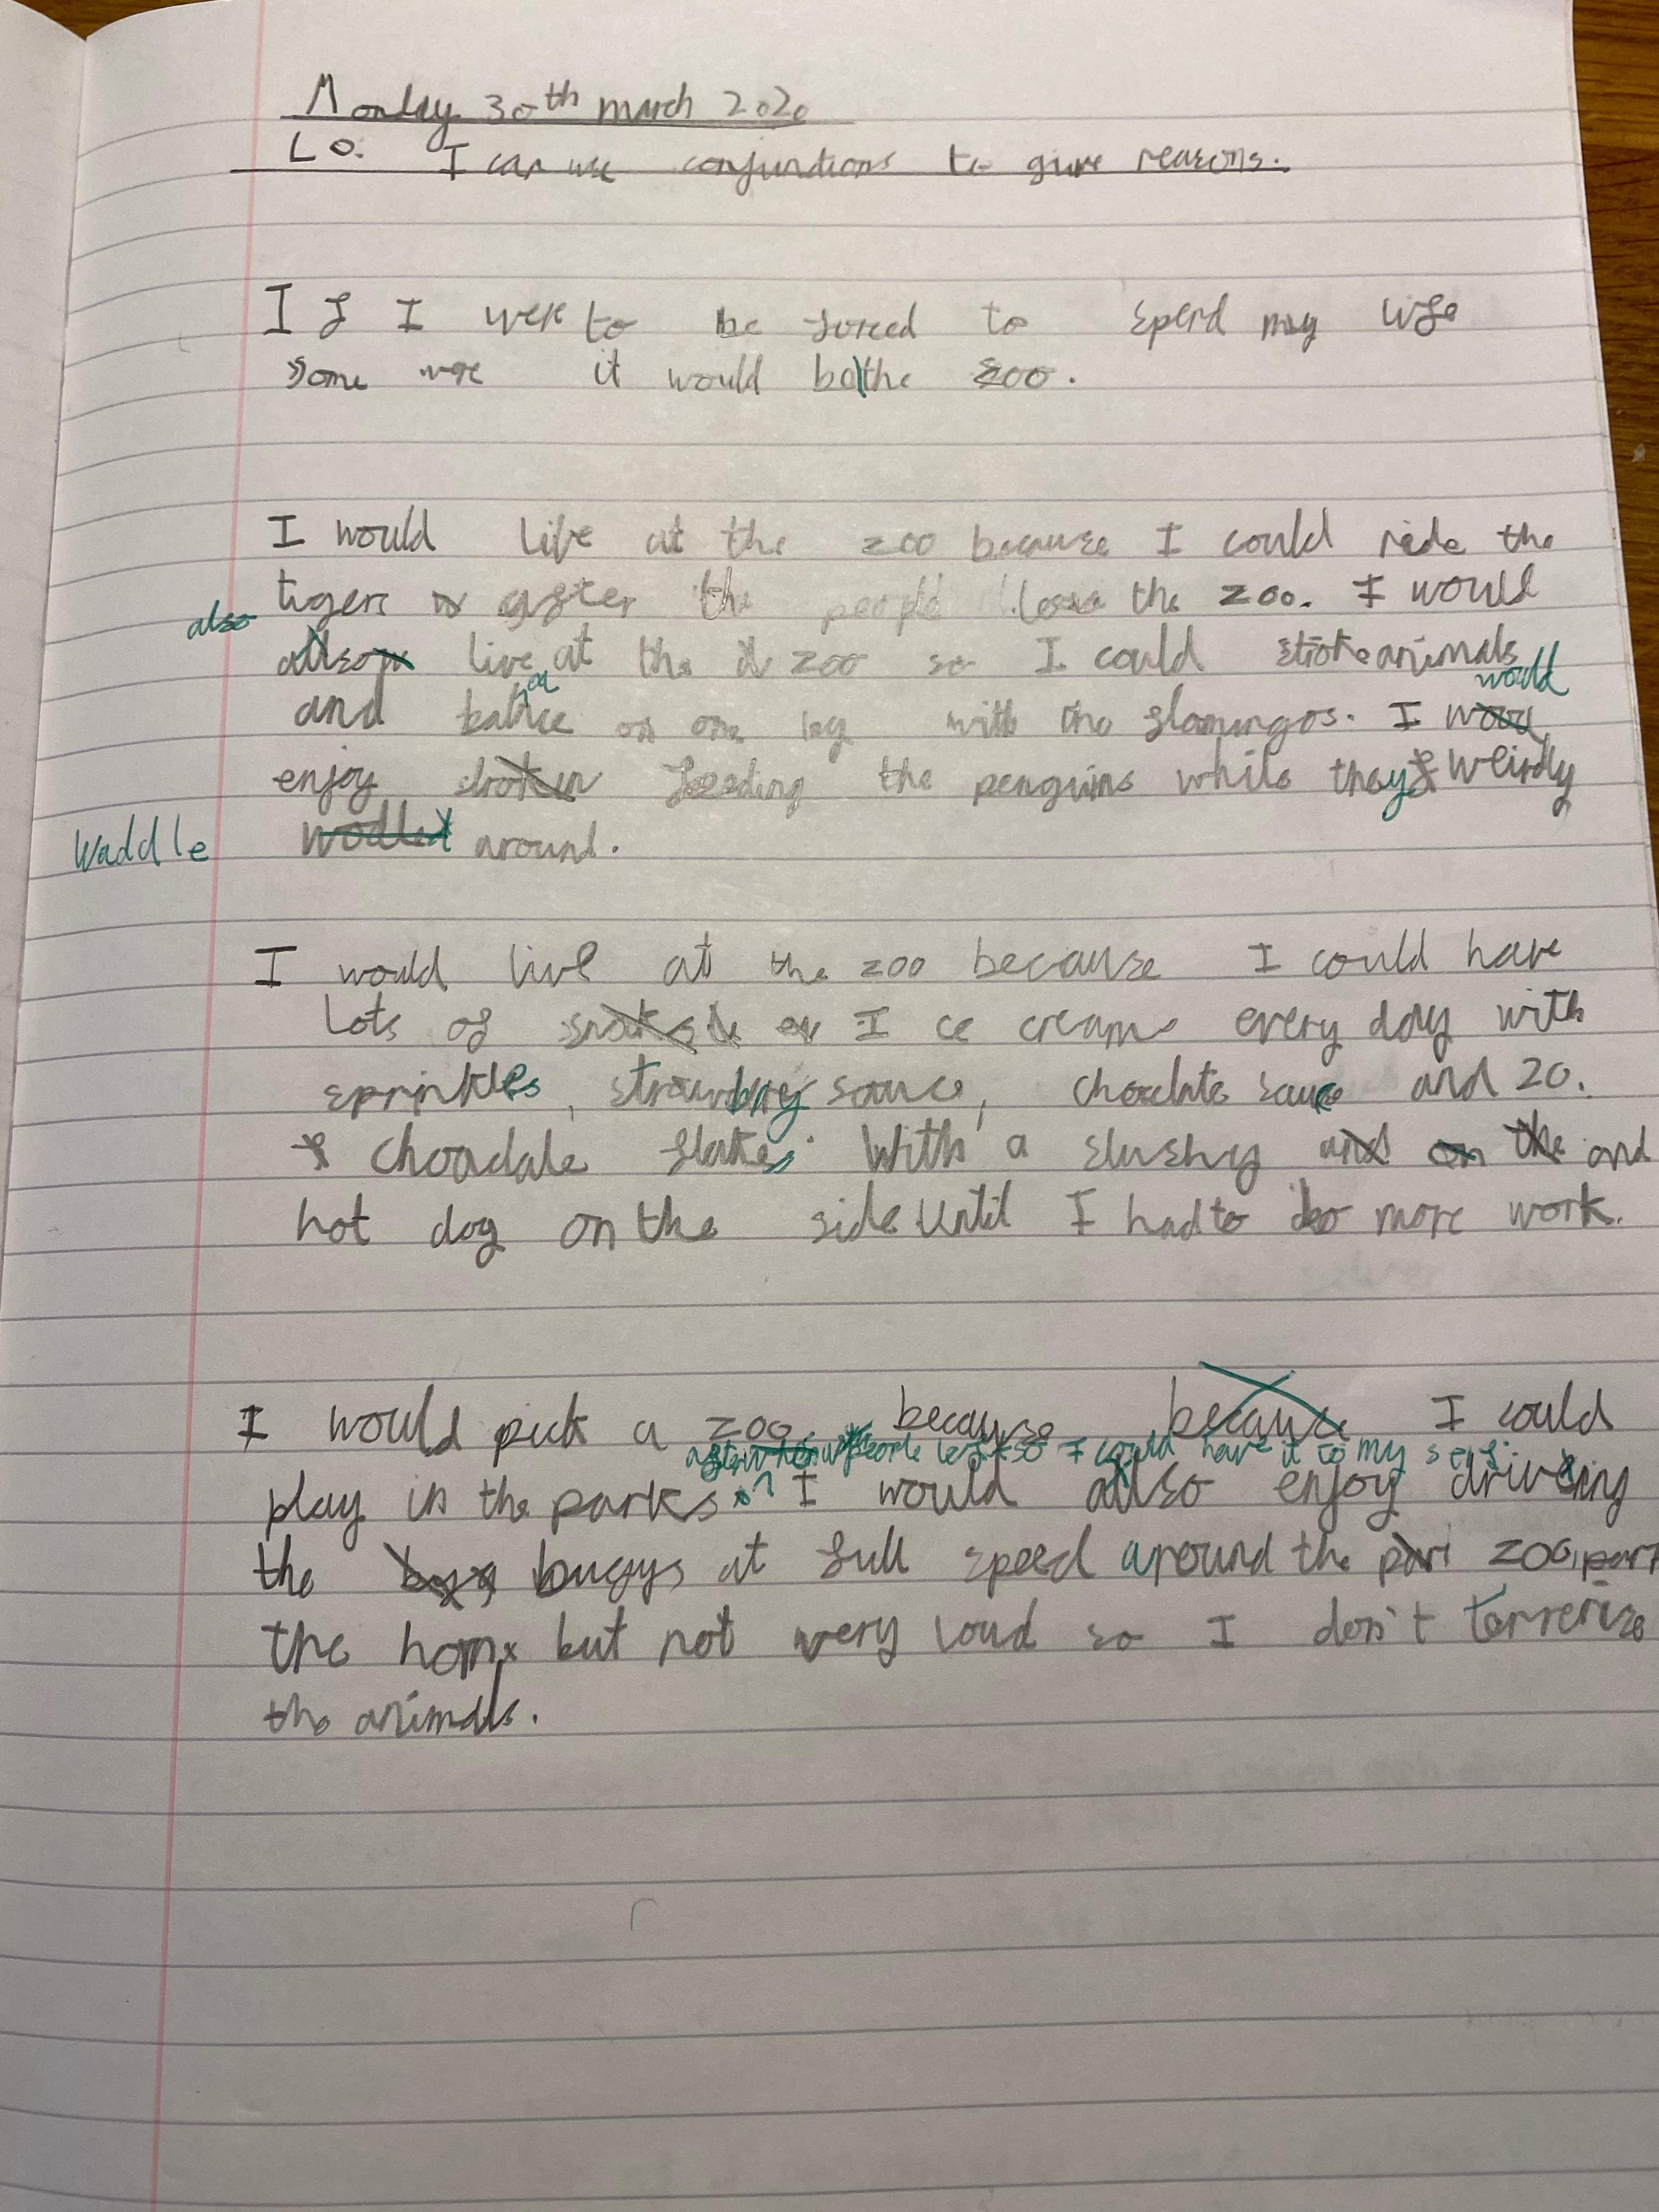 Monday 30th march 2020
LO. I can use conjunctions to give reasons.
If I were to be forced to spend my life
some were it would be the zoo.
I would life at the zoo because I could ride the
tigers after the people leave the zoo. I would
also
live at the zoo so I could stroke animals
would
and balance on one leg with the flamingos. I
enjoy feeding the penguins while they weirdly
Waddle around.
I would live at the zoo because I could have
Lots of I ce cream every day with
sprinkles, strawbery sauce, choclate sauce and 20.
flakes. With a slushy and
hot dog on the side Until I had to do more work.
I would pick a zoo because I could
after people left so I could have it to my self
play in the parks. I would also enjoy driving
the buggys at full speed around the zoo,
the horn but not very loud so I don't terrerize
the animals.